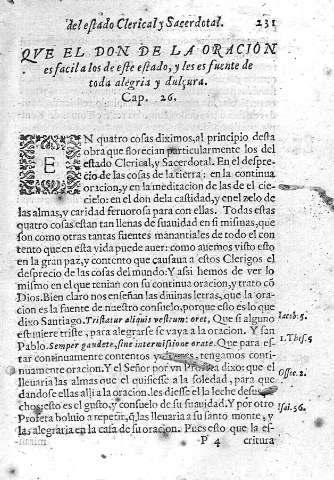 del estado Clerical y Sacerdotal. 231
QVE EL DON DE LA ORACION
es facil a los de este estado, y les es fuente de
toda alegria y dulçura.
Cap. 26.
EN quatro cosas diximos, al principio desta
obra que florecian particularmente los del
estado Clerical, y Sacerdotal. En el despre-
cio de las cosas de la tierra; en la continua
oracion, y en la meditacion de las de el cie-
cielo: en el don de la castidad, y en el zelo de
las almas, y caridad feruorosa para con ellas. Todas estas
quatro cosas estan tan llenas de suauidad en si mismas, que
son como otras tantas fuentes manantiales de todo el con
tento que en esta vida puede auer: como auemos visto esto
en la gran paz, y contento que causaua a estos Clerigos el
desprecio de las cosas del mundo: Y assi hemos de ver lo
mismo en el que tenian con su continua oracion, y trato cõ
Dios. Bien claro nos enseñan las diuinas letras, que la ora-
cion es la fuente de nuestro consuelo, porque esso es lo que
dixo Santiago. Tristatur aliquis vestrum: oret. Que si alguno Iacob. 5.
estuuiere triste, para alegrarse se vaya a la oracion. Y san
Pablo. Semper gaudete, sine intermissione orate. Que para es- 1. Thes. 5
tar continuamente contentos y tengamos conti-
nuamente oracion. Y el Señor por vn Profeta dixo: que el
lleuaria las almas que el quisiesse a la soledad, para que Osseę. 2.
dandose ellas alli a la oracion, les diesse el la leche de sus
chos; esto es el gusto, y consuelo de su suauidad. Y por otro
Profeta boluio a repetir, q̃ las lleuaria a su santo monte, y Isai. 56.
las alegraria en la casa de su oracion. Pues esto que la es-
P 4 critura